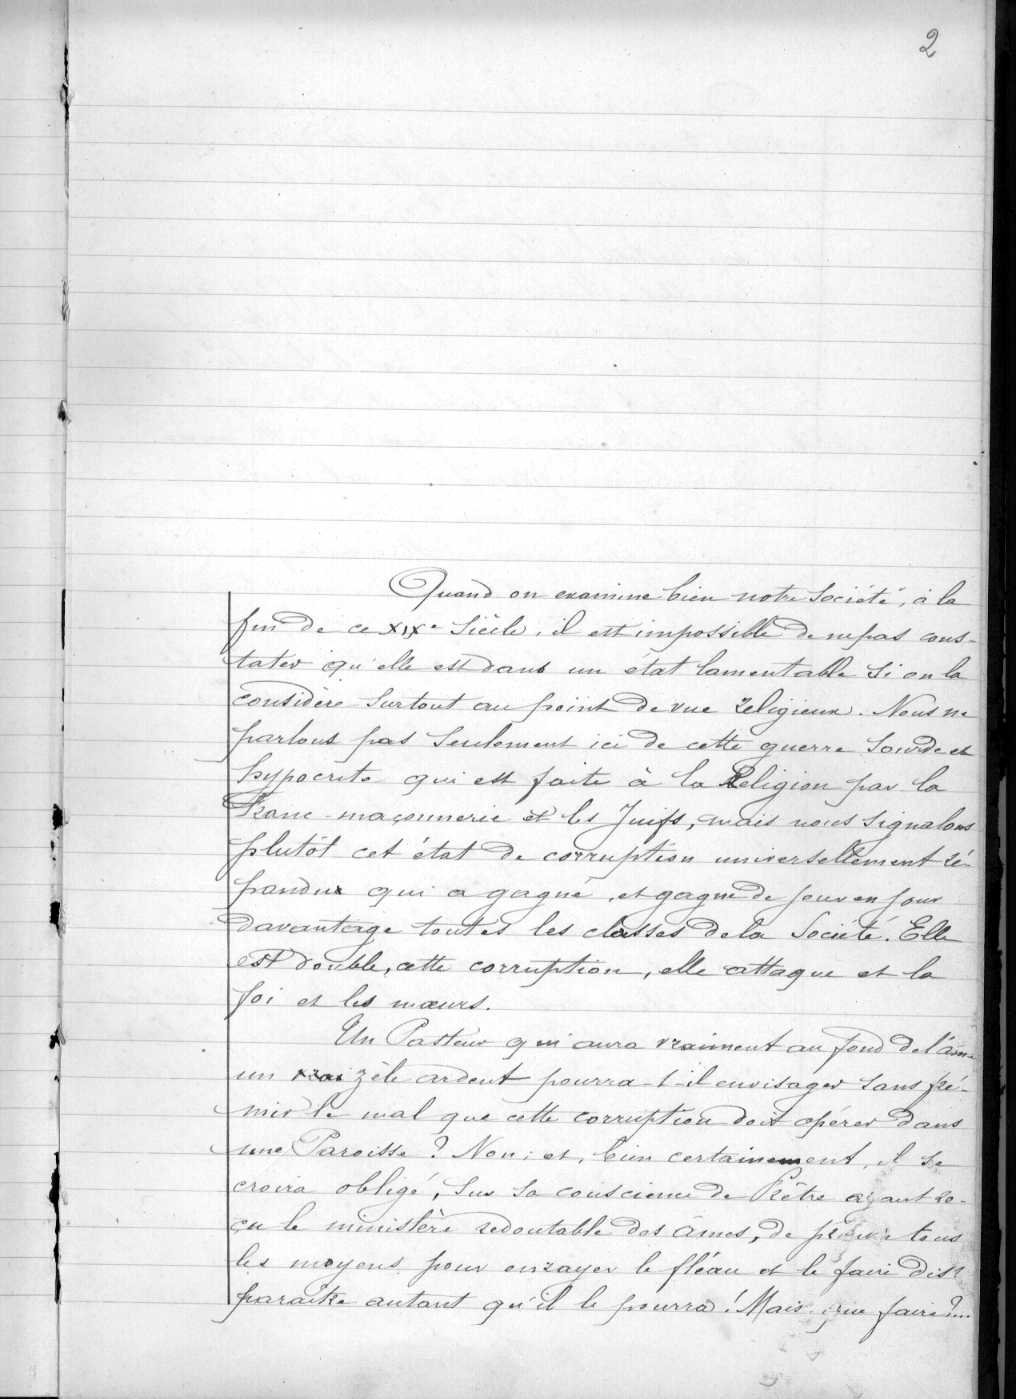 2
Quand on examine bien notre Société, à la
fin de ce XIXe Siècle, il est impossible de ne pas cons-
tater qu'elle est dans un état lamentable si on la
considère surtout au point de vue religieux. Nous ne
parlons pas seulement ici de cette guerre sourde et
hypocrite qui est faite à la Religion par la
Franc-maçonnerie et les Juifs, mais nous signalons
plutôt cet état de corruption universellement ré-
pandu qui a gagné, et gagne de jour en jour
davantage toutes les classes de la Société. Elle
est double, cette corruption, elle attaque et la
foi et les mœurs.
Un Pasteur qui aura vraiment au fond de l'âme
un zèle ardent pourra-t-il envisager sans fré-
mir le mal que cette corruption doit opérer dans
une Paroisse? Non; et, bien certainement, il se
croira obligé, sur sa conscience de Prêtre ayant re-
çu le ministère redoutable des âmes, de tous
les moyens pour enrayer le fléau et le faire dis-
paraître autant qu'il le pourra! Mais que faire?...